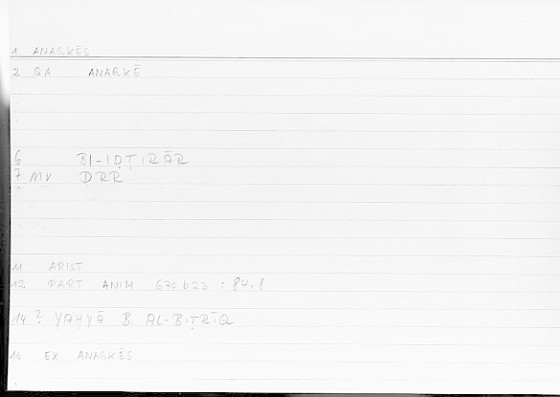 1 ANAGKĒS
2 QA ANAGKĒ
6 BI-IḌṬIRĀR
7 MV ḌRR
11 ARIST
12 PART ANIM 670b23 : 84,8
14 ? YAḤYĀ B. AL-BIṬRĪQ
16 EX ANAGKĒS